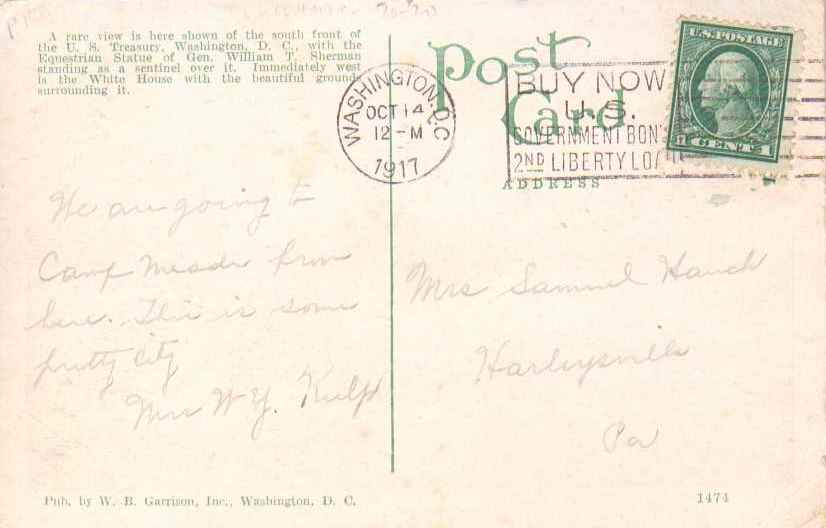 A rare view is here shown of the south front of
the U. S. Treasury, Washington, D. C., with the
Equestrian Statue of Gen. William T. Sherman
standing as a sentinel over it. Immediately west
is the White House with the beautiful grounds
surrounding it.
Post
Card
WASHINGTON, D.C.
OCT 14
12-M
1917
BUY NOW
U.S.
GOVERNMENT BON
2ND LIBERTY LOA
U.S. POSTAGE
1 CENT 1
ADDRESS
We are going to
Camp Meade from
here. This is some
pretty city
Mrs W Y. Kulp
Mrs Samuel Hauch
Harleysville
Pa
Pub. by W. B. Garrison, Inc., Washington, D. C.
1474